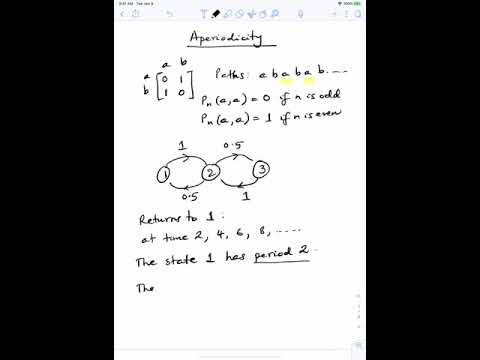 9:41 AM Tue Jan 9
Aperiodicity
a b
a [ 0 1 ]
b [ 1 0 ]
Paths: a b a b a b.....
Pn(a,a) = 0 if n is odd
Pn(a,a) = 1 if n is even
1 0.5
1 2 3
0.5 1
Returns to 1:
at time 2, 4, 6, 8, .....
The state 1 has period 2.
The